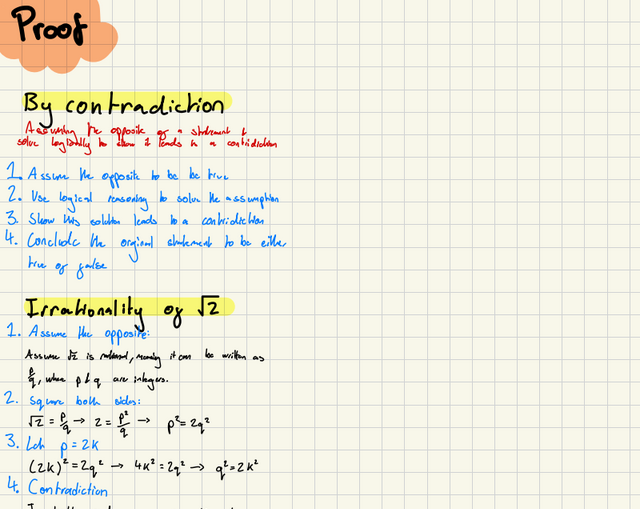 Proof
By contradiction
Assuming the opposite of a statement &
solve logically to show it leads to a contridiction
1. Assume the opposite to be be true
2. Use logical reasoning to solve the assumption
3. Show this solution leads to a contridiction
4. Conclude the orginal statement to be either
true or false
Irrationality of √2
1. Assume the opposite:
Assume √2 is rational, meaning it can be written as
p/q, where p & q are integers.
2. Square both sides:
√2 = p/q → 2 = p²/q → p² = 2q²
3. Let p = 2k
(2k)² = 2q² → 4k² = 2q² → q² = 2k²
4. Contradiction